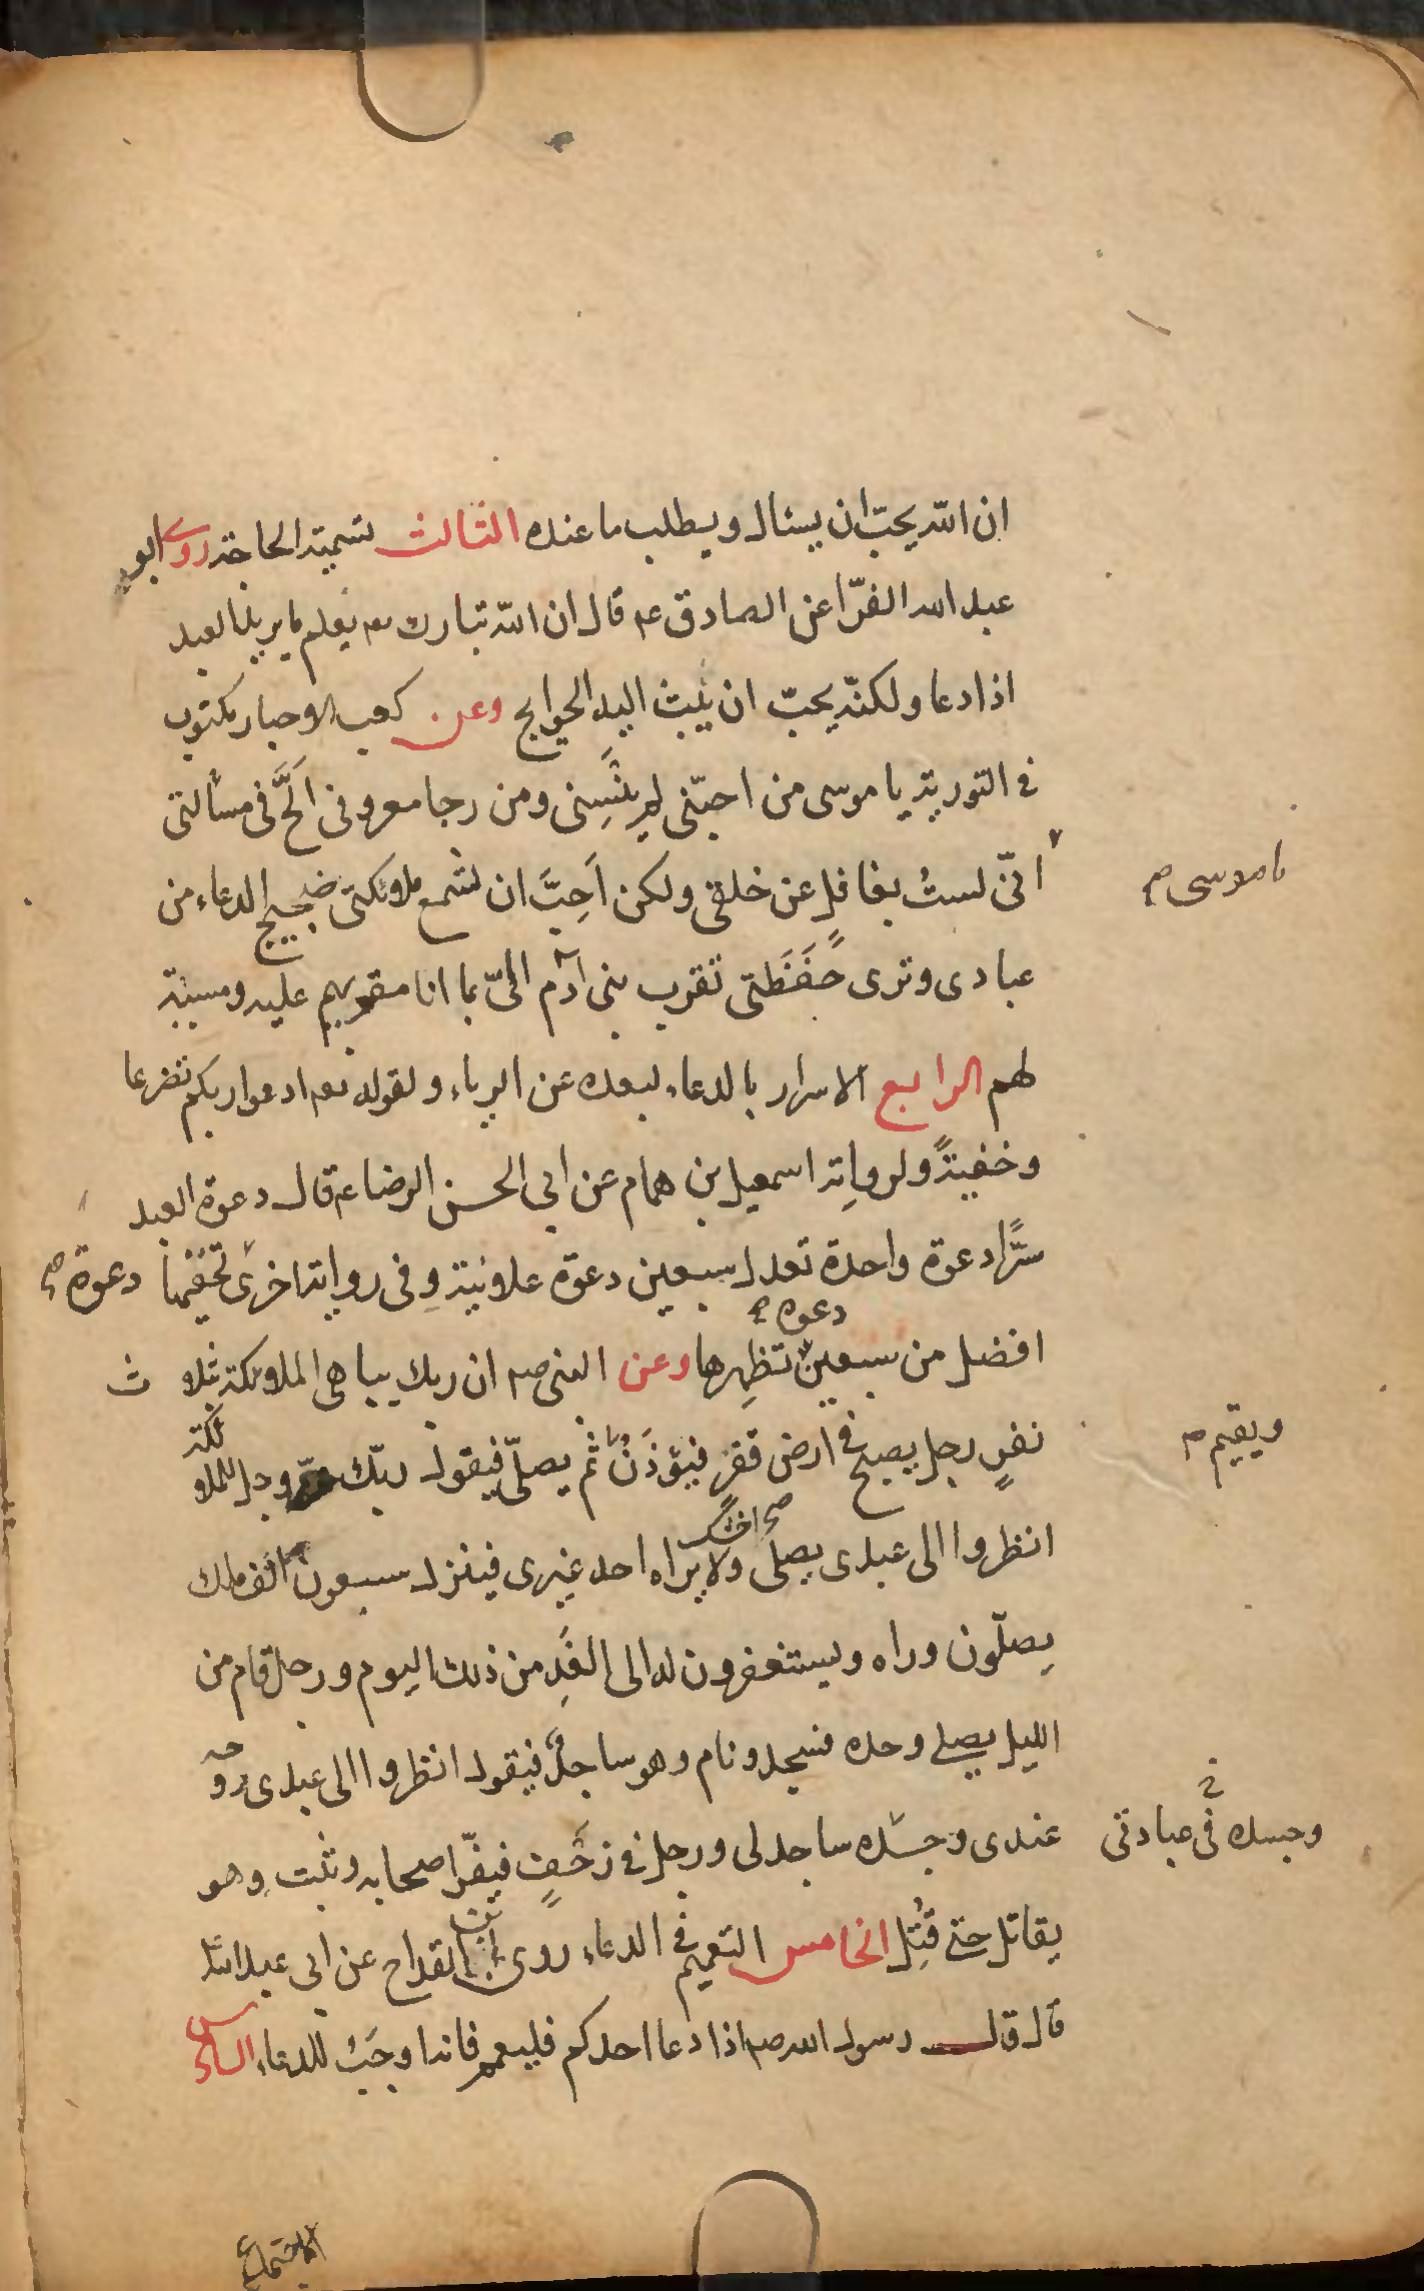 ان الله يحبّ ان يسئال ويطلب ما عنده الثالث تسمية الحاجة روى ابو
عبد الله الفرّا عن الصادق عم قال ان الله تبارك تعم يعلم ما يريد العبد
اذا دعا ولكنّه يحبّ ان يبث اليه الحوايج وعن كعب الاحبار مكتوب
في التورية يا موسى من احبّنى لم ينسِنى ومن رجا معروفى اَلَحَّ فى مسألتى
يا موسى صح
انّى لستُ بغافل عن خلقى ولكن اُحِبَّ ان تسمع ملائكتى ضجيج الدعاء من
عبادى وترى حَفَظَتى تقرب بنى آدم الىّ بما انا مقويهم عليه ومسببه
لهم الرابع الاسرار بالدعاء لبعده عن الرياء ولقوله تعم ادعوا ربكم تضرعا
وخفيةً ولرواية اسمعيل بن همام عن ابى الحسن الرضا عم قال دعوة العبد
سرًّا دعوة واحدة تعدل سبعين دعوة علانية وفى رواية اخرى تخفيها دعوة صح
دعوة صح
افضل من سبعين تظهرها وعن النبى صم ان ربك يباهى الملائكة بثلاث
نفرٍ رجل يصبح فى ارض قفر فيؤذن ثم يصلّى فيقول ربّك عزّ وجل للملائكة
ويقيم صح
انظروا الى عبدى يصلى ولا يراه احد غيرى فينزل سبعون الف ملك
يصلّون وراه ويستغفرون له الى الغَدِ من ذلك اليوم ورجل قام من
الليل يصلى وحده فسجد ونام وهو ساجدٌ فيقول انظروا الى عبدى روحه
عندى وجسده ساجد لى ورجل فى زَحْفٍ فيفرّ اصحابه وثبت وهو
وجسده فى عبادتى خ
يقاتل حتى قُتِل الخامس التعميم فى الدعاء روى ابن القداح عن ابى عبد الله
قال قال رسول الله صم اذا دعا احدكم فليعمم فانه اوجبُ للدعاء السادس
الاجتماع